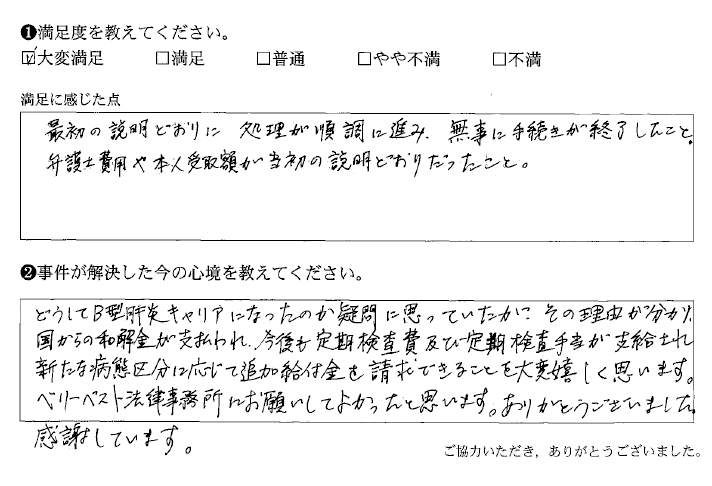 ❶満足度を教えてください。
☑大変満足 □満足 □普通 □やや不満 □不満
満足に感じた点
最初の説明どおりに 処理が順調に進み、無事に手続きが終了したこと。
弁護士費用や本人受取額が当初の説明どおりだったこと。
❷事件が解決した今の心境を教えてください。
どうしてB型肝炎キャリアになったのか疑問に思っていたが、その理由が分かり、
国からの和解金が支払われ、今後も定期検査費及び定期検査手当が支給され
新たな病態区分に応じて追加給付金を請求できることを大変嬉しく思います。
ベリーベスト法律事務所にお願いしてよかったと思います。ありがとうございました。
感謝しています。
ご協力いただき、ありがとうございました。